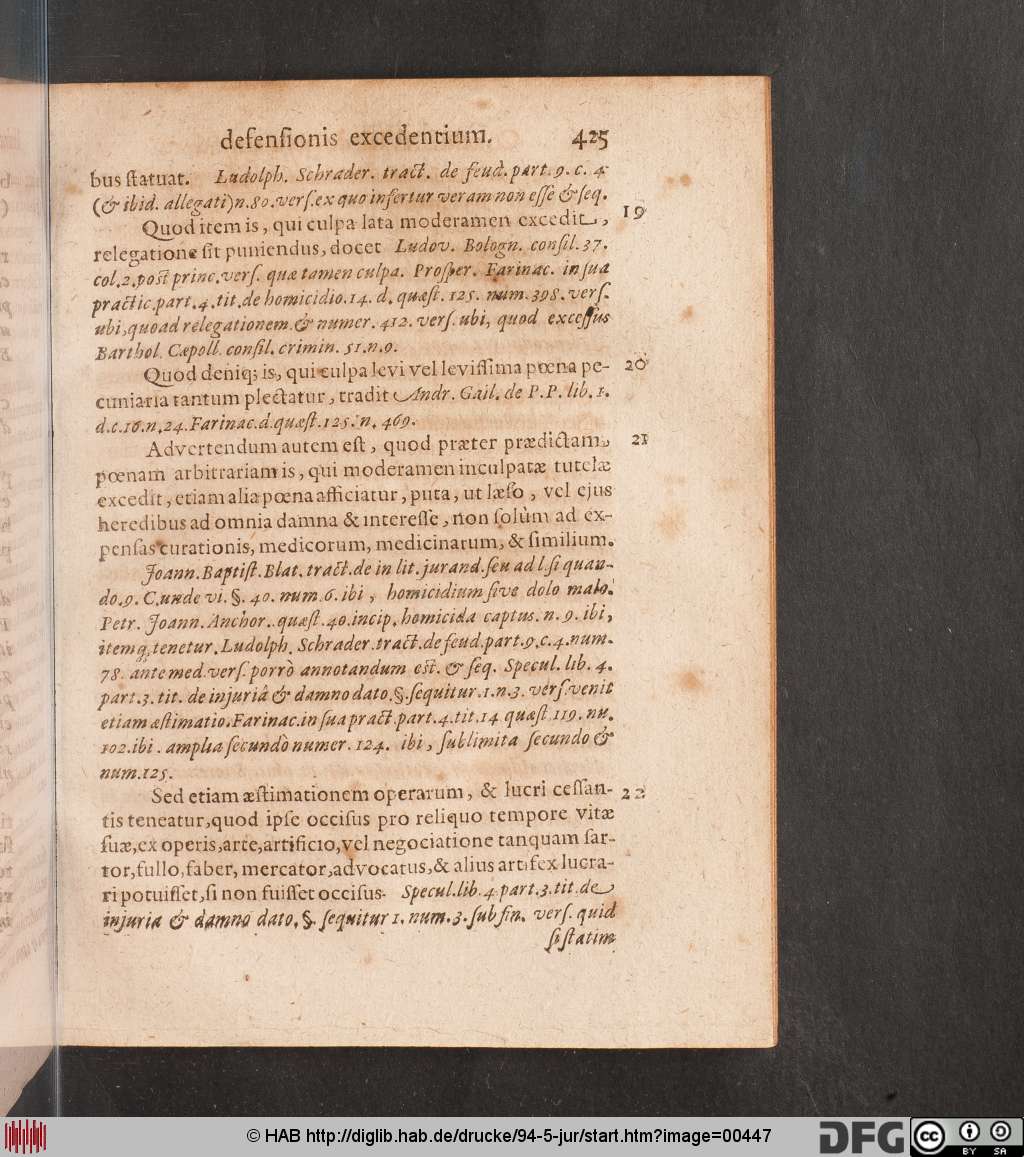 defensionis excedentium. 425
bus statuat. Ludolph. Schrader. tract. de feud. part. 9. c. 4
(& ibid. allegati) n. 80. vers. ex quo infertur veram non esse & seq.
Quod item is, qui culpa lata moderamen excedit, 19
relegatione sit puniendus, docet Ludov. Bologn. consil. 37.
col. 2. post princ. vers. quæ tamen culpa. Prosper. Farinac. in sua
practic. part. 4. tit. de homicidio. 14. d. quæst. 125. num. 398. vers.
ubi, quoad relegationem. & numer. 412. vers. ubi, quod excessus
Barthol. Cæpoll. consil. crimin. 51. n. 9.
Quod deniq; is, qui culpa levi vel levissima pœna pe- 20
cuniaria tantum plectatur, tradit Andr. Gail. de P. P. lib. 1.
d. c. 16. n. 24. Farinac. d. quæst. 125. n. 469.
Advertendum autem est, quod præter prædictam, 21
pœnam arbitrariam is, qui moderamen inculpatæ tutelæ
excedit, etiam alia pœna afficiatur, puta, ut læso, vel ejus
heredibus ad omnia damna & interesse, non solùm ad ex-
pensas curationis, medicorum, medicinarum, & similium.
Joann. Baptist. Blat. tract. de in lit. jurand. seu ad l. si quan-
do. 9. C. unde vi. §. 40. num. 6. ibi, homicidium sive dolo malo.
Petr. Joann. Anchor. quæst. 40. incip. homicida captus. n. 9. ibi,
itemq; tenetur. Ludolph. Schrader. tract. de feud. part. 9. c. 4. num.
78. ante med. vers. porrò annotandum est. & seq. Specul. lib. 4.
part. 3. tit. de injuriâ & damno dato. §. sequitur. 1. n. 3. vers. venit
etiam æstimatio. Farinac. in sua pract. part. 4. tit. 14 quæst. 119. nu.
102. ibi. amplia secundò numer. 124. ibi, sublimita secundo &
num. 125.
Sed etiam æstimationem operarum, & lucri cessan- 22
tis teneatur, quod ipse occisus pro reliquo tempore vitæ
suæ, ex operis, arte, artificio, vel negociatione tanquam sar-
tor, fullo, faber, mercator, advocatus, & alius artifex lucra-
ri potuisset, si non fuisset occisus. Specul. lib. 4. part. 3. tit. de
injuria & damno dato. §. sequitur 1. num. 3. sub fin. vers. quid
si statim
© HAB http://diglib.hab.de/drucke/94-5-jur/start.htm?image=00447
DFG cc BY SA